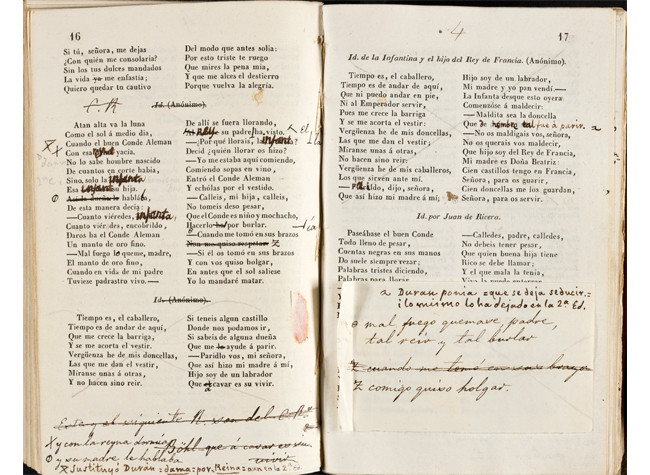 16
Si tú, señora, me dejas
¿Con quién me consolaria?
Sin los tus dulces mandados
La vida ya me enfastia;
Quiero quedar tu cautivo
Del modo que antes solia:
Por esto triste te ruego
Que mires la pena mia,
Y que me alces el destierro
Porque vuelva la alegría.
Id. (Anónimo).
Atan alta va la luna
Como el sol á medio dia,
Cuando el buen Conde Aleman
Con esa yacía.
No lo sabe hombre nascido
De cuantos en corte habia,
Sino solo la infanta
Esa infanta su hija.
Así la habla
De esta manera decia:
—Cuanto viéredes, infanta
Cuanto viéredes, encobrildo,
Daros ha el Conde Aleman
Un manto de oro fino.
—Mal fuego queme, madre,
El manto de oro fino,
Cuando en vida de mi padre
Tuviese padrastro vivo.—
De allí se fuera llorando,
rey su padre ha visto.
—¿Por qué llorais, infanta?
Decid ¿quién llorar os hizo?
—Yo me estaba aquí comiendo,
Comiendo sopas en vino,
Entró el Conde Aleman
Y echólas por el vestido.
—Calleis, mi hija, calleis,
No tomeis deso pesar,
Que el Conde es niño y mochacho,
Hacerlo por burlar.
—Cuando me tomó en sus brazos
—Si él os tomó en sus brazos
Y con vos quiso holgar,
En antes que el sol saliese
Yo lo mandaré matar.
Id. (Anónimo).
Tiempo es, el caballero,
Tiempo es de andar de aquí,
Que me crece la barriga,
Y se me acorta el vestir.
Vergüenza he de mis doncellas,
Las que me dan el vestir,
Míranse unas á otras,
Y no hacen sino reir.
Si teneis algun castillo
Donde nos podamos ir,
Si sabeis de alguna dueña
Que me lo ayude á parir.
—Paridlo vos, mi señora,
Que así hizo mi madre á mí,
Hijo soy de un labrador
Que á cavar es su vivir.
X y con la reyna dormia
Böhl que á cavar es su
vivir
y su madre le hablaba
Z Sustituyó Duran: dama: por Reina: aun en la 2ª ed
4
17
Id. de la Infantina y el hijo del Rey de Francia. (Anónimo).
Tiempo es, el caballero,
Tiempo es de andar de aquí,
Que ni puedo andar en pie,
Ni al Emperador servir,
Pues me crece la barriga
Y se me acorta el vestir:
Vergüenza he de mis doncellas,
Las que me dan el vestir;
Míranse unas á otras,
No hacen sino reir:
Vergüenza he de mis caballeros,
Los que sirven ante mí.—
—Parildo, dijo, señora,
Que así hizo mi madre á mí;
Hijo soy de un labrador,
Mi madre y yo pan vendí.—
La Infanta desque esto oyera
Comenzóse á maldecir:
—Maldita sea la doncella
Que de hombre tal fué á parir.
—No os maldigais vos, señora,
No os querais vos maldecir,
Que hijo soy del Rey de Francia,
Mi madre es Doña Beatriz:
Cien castillos tengo en Francia,
Señora, para os guarir,
Cien doncellas me los guardan,
Señora, para os servir.
Id. por Juan de Rivera.
Paseábase el buen Conde
Todo lleno de pesar,
Cuentas negras en sus manos
Do suele siempre rezar;
Palabras tristes diciendo,
Palabras para llorar
—Calledes, padre, calledes,
No debeis tener pesar,
Que quien buena hija tiene
Rico se debe llamar;
Y el que mala la tenia,
2 Duran ponia = que se deja seducir. =
i lo mismo lo ha dejado en la 2ª Ed.
mal fuego quemave padre,
tal reir y tal burlar
Z cuando me tomó en sus brazos
Z comigo quiso holgar.